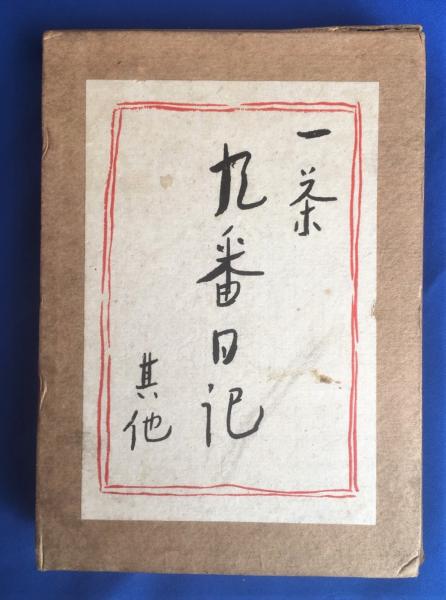 一茶
九番日記
其他